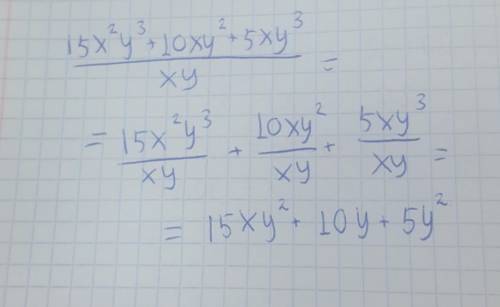 15x²y³+10xy²+5xy³
xy =
= 15x²y³ + 10xy² + 5xy³ =
xy xy xy
= 15xy² + 10y + 5y²